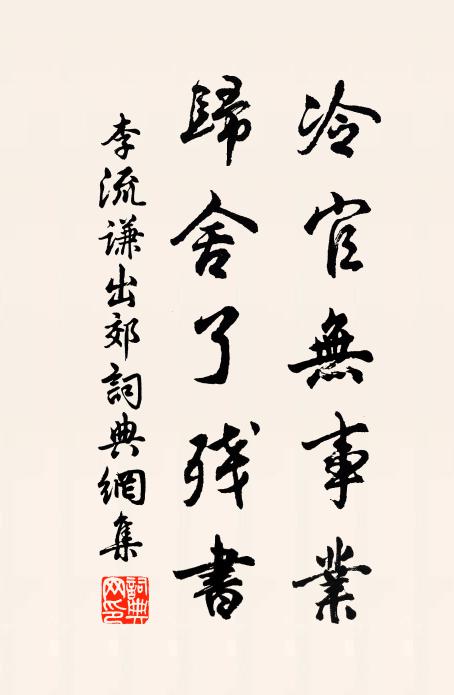 冷官無事業
歸舍了残書
李流谦出郊詞典網集
詞典网印